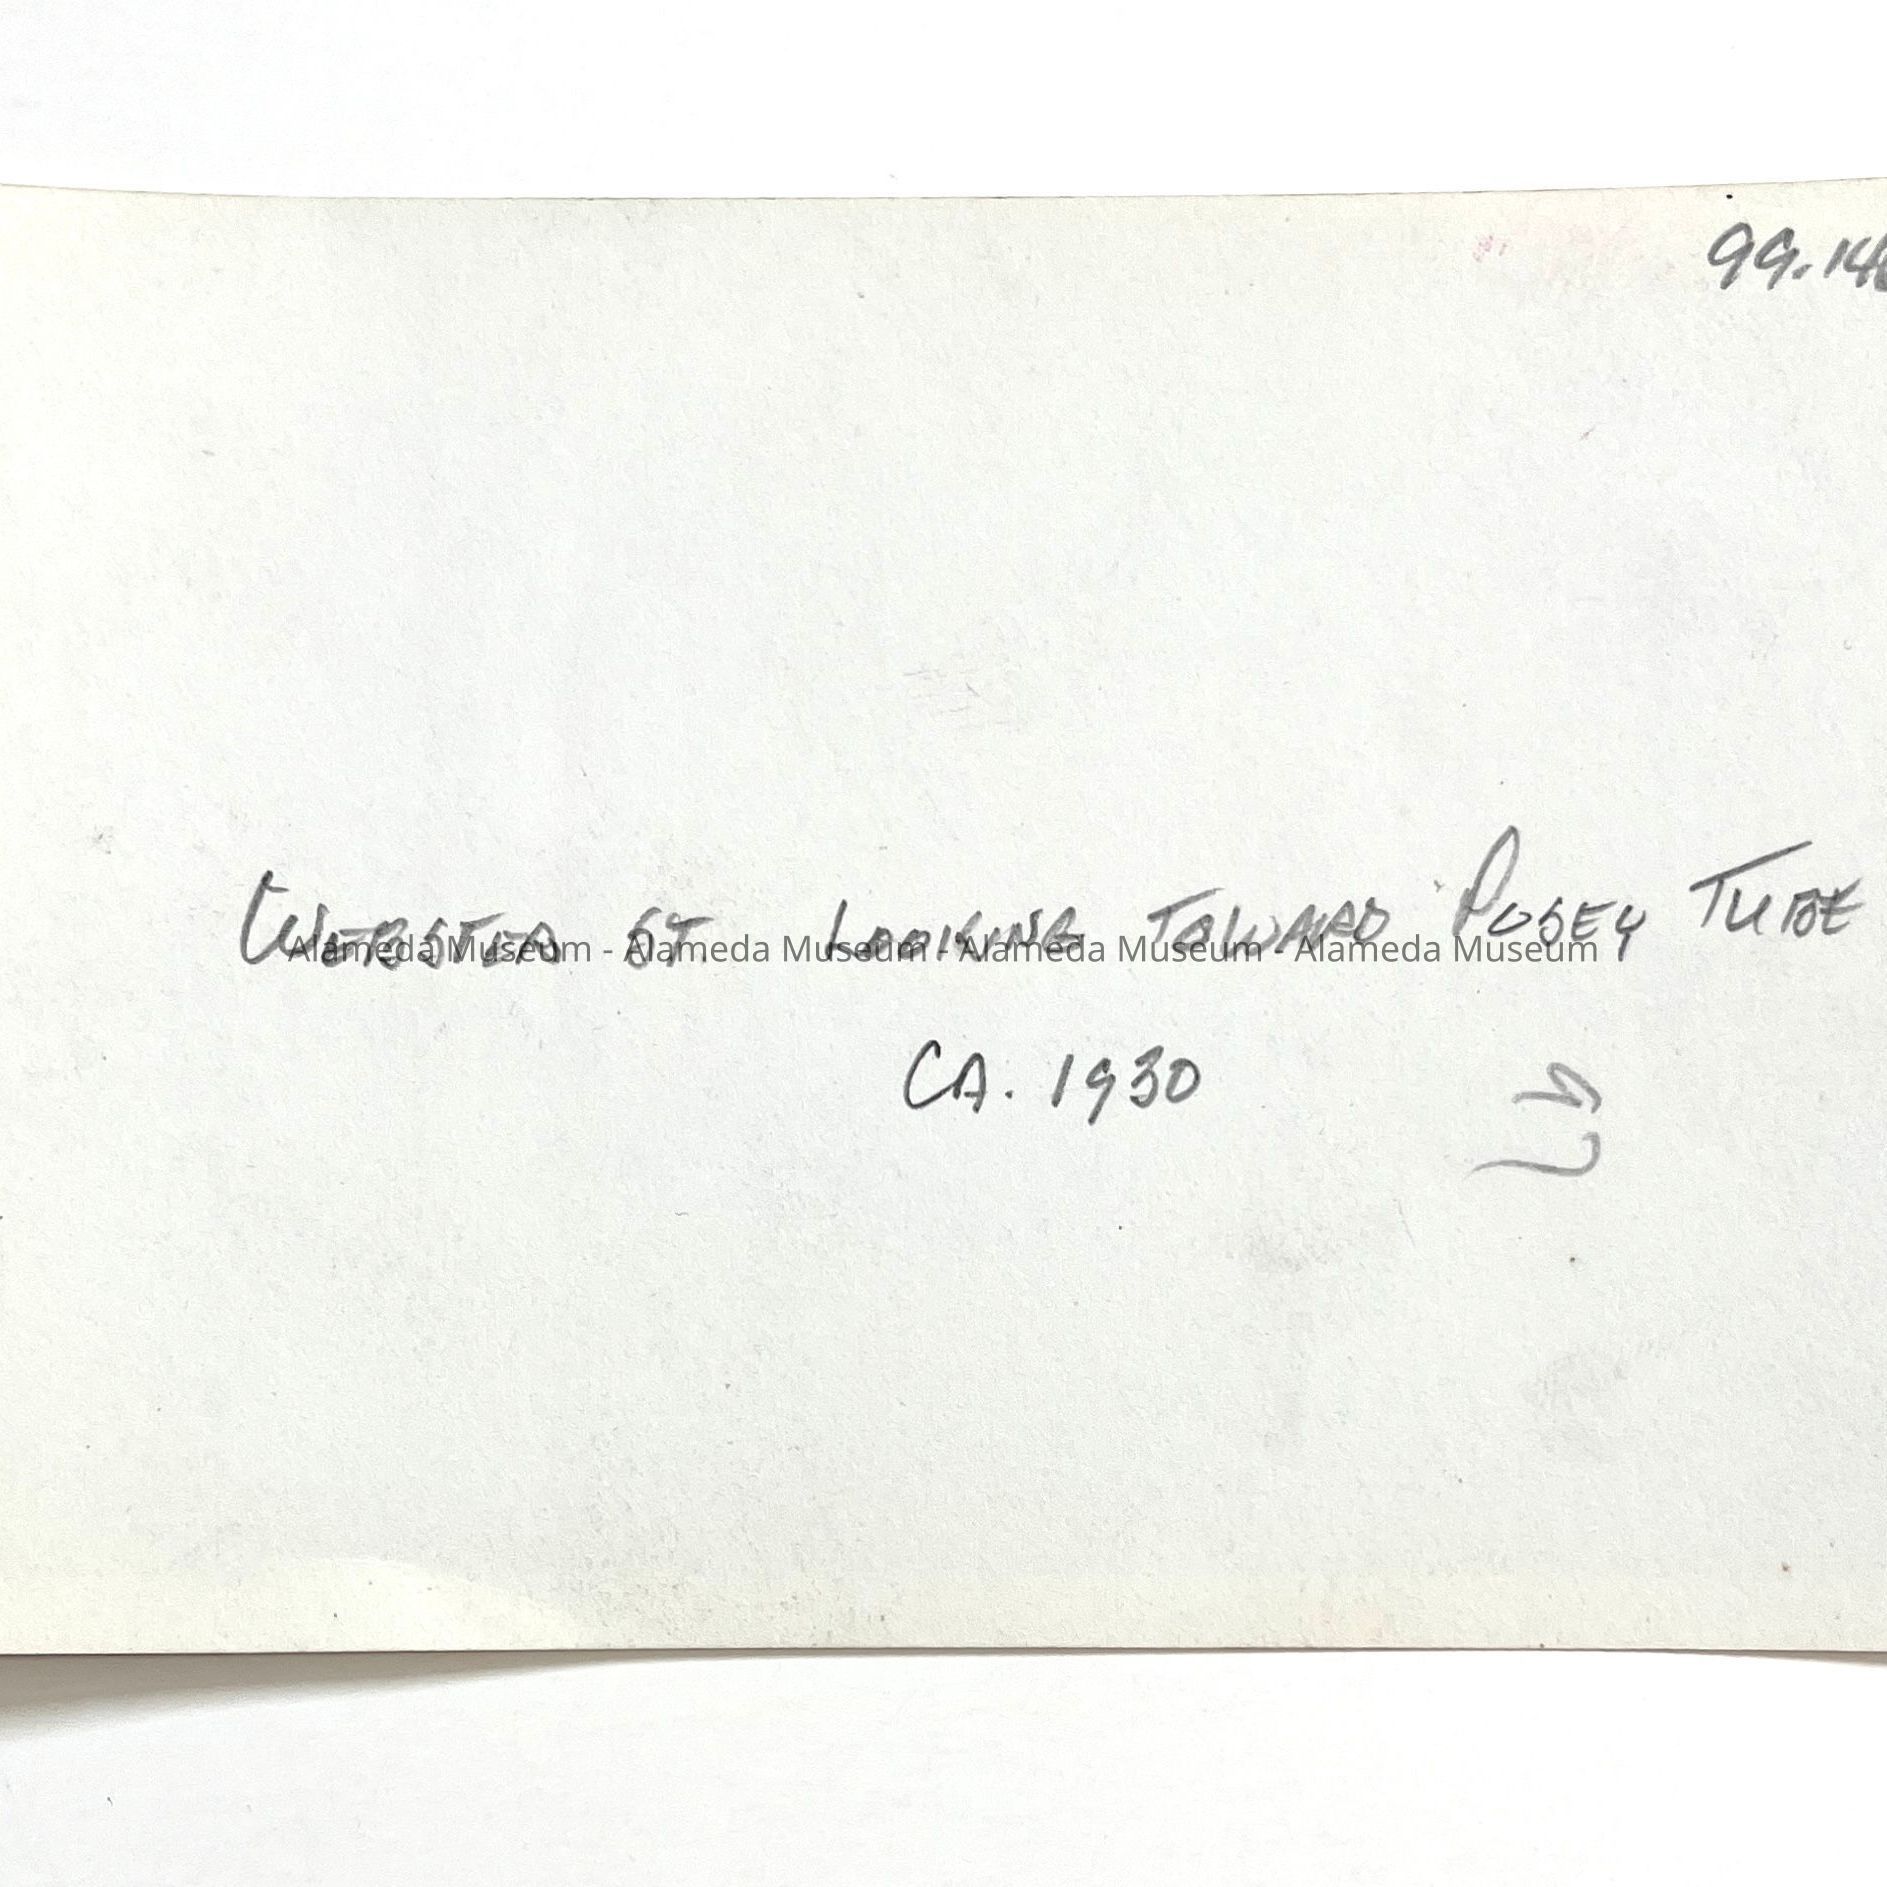 99.14
WEBSTER ST. LOOKING TOWARD POSEY TUBE
CA. 1930
Alameda Museum - Alameda Museum - Alameda Museum - Alameda Museum